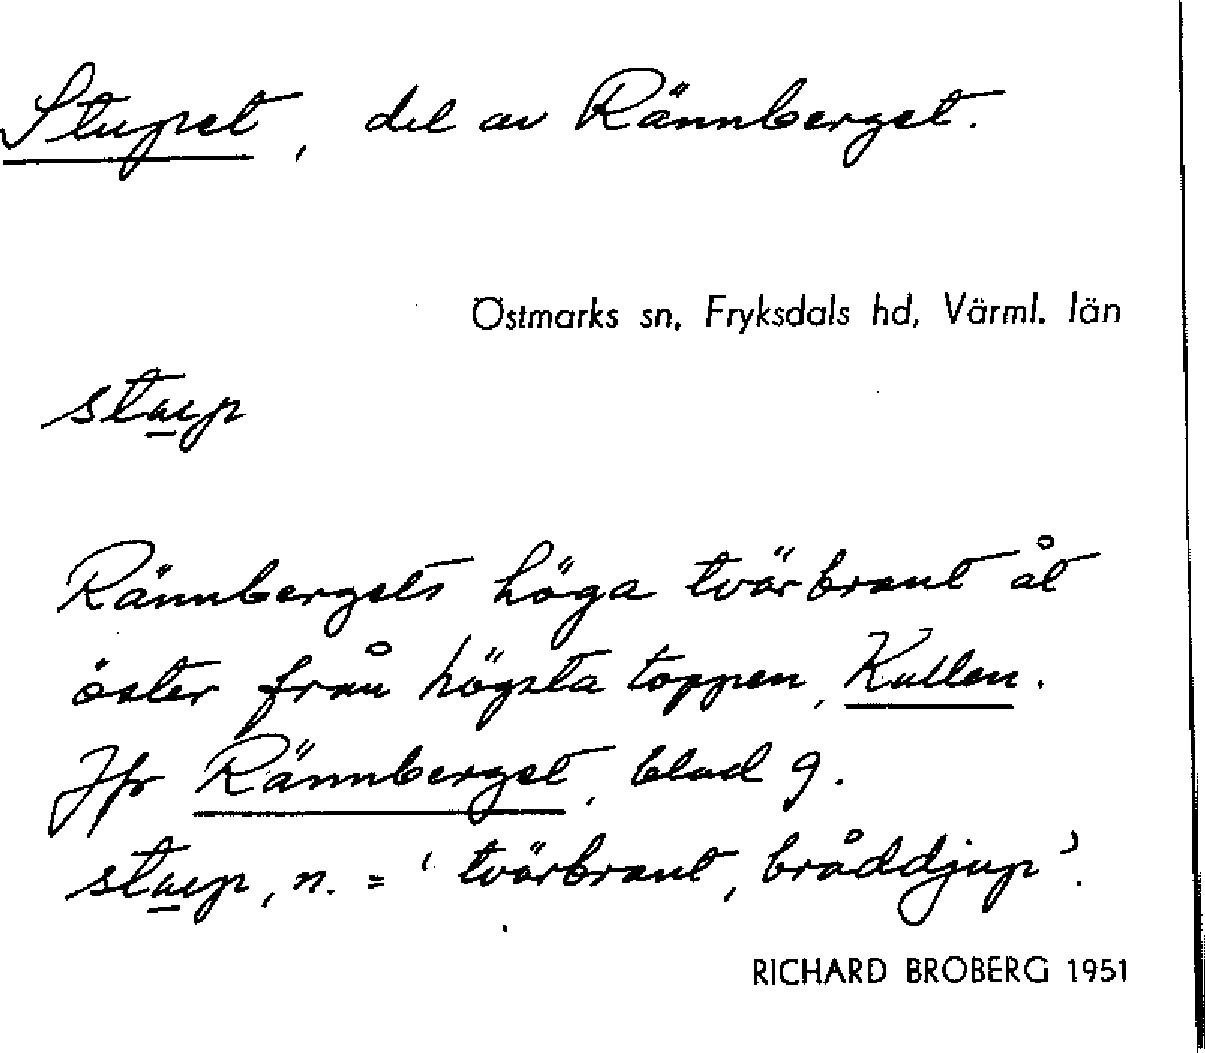 Stupet, del av Rännberget.
Östmarks sn, Fryksdals hd, Värml. län
stup
Rännbergets höga tvärbrant åt
öster från högsta toppen, Kullen.
Jfr Rännberget, blad 9.
stup, n. = ‘tvärbrant, bråddjup’.
RICHARD BROBERG 1951